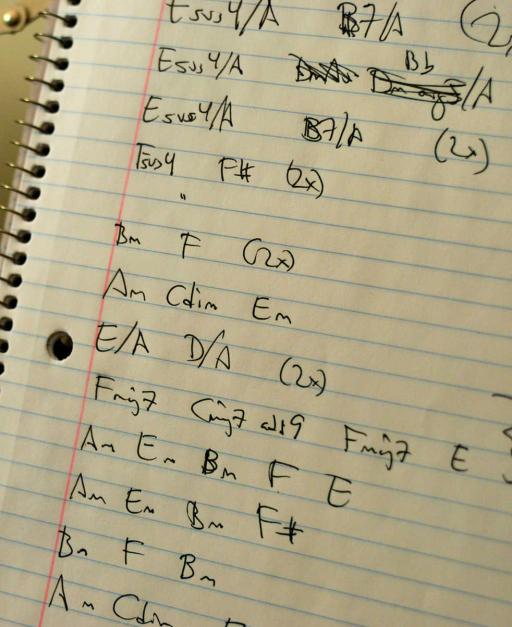 Esus4/A B7/A (2
Esus4/A Bb/A
Esus4/A B7/A (2x)
Fsus4 F# (2x)
"
Bm F (2x)
Am Cdim Em
E/A D/A (2x)
Fmaj7 Cmaj7 add9 Fmaj7 E
Am Em Bm F E
Am Em Bm F#
Bm F Bm
Am Cdim